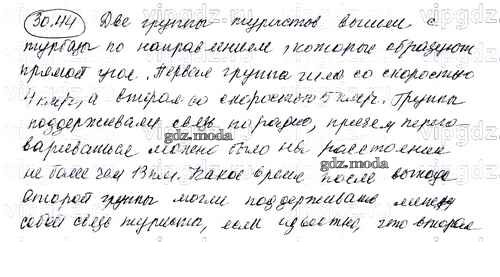 30.44 Две группы туристов вышли с
турбазы по направлениям, которые образуют
прямой угол. Первая группа шла со скоростью
4 км/ч, а вторая со скоростью 5 км/ч. Группы
поддерживали связь по радио, причем перего-
вариваться можно было на расстоянии
не более чем 13 км. Какое время после выхода
второй группы могли поддерживать между
собой связь туристы, если известно, что вторая
gdz.moda
gdz.moda